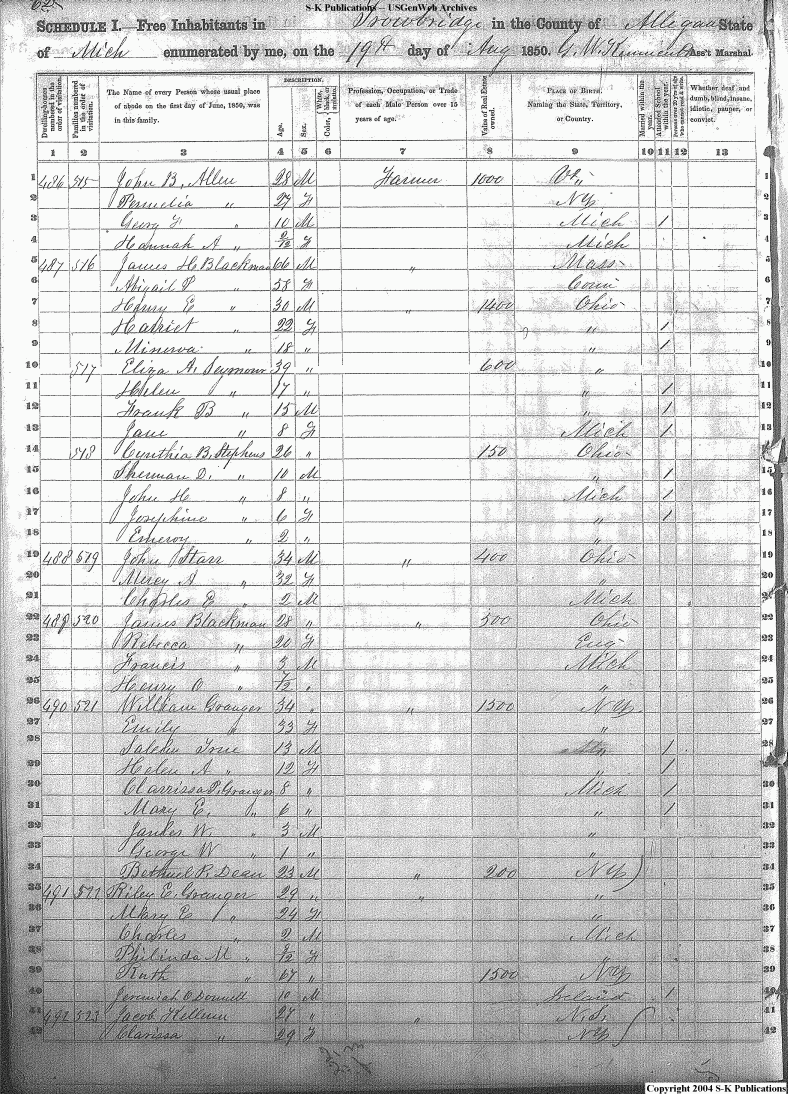 S-K Publications – USGenWeb Archives
SCHEDULE I.—Free Inhabitants in Trowbridge in the County of Allegan State
of Mich enumerated by me, on the 19th day of Aug 1850. G. W. Ass't Marshal.
Dwelling-houses numbered in the order of visitation.
Families numbered in the order of visitation.
The Name of every Person whose usual place of abode on the first day of June, 1850, was in this family.
DESCRIPTION.
Age.
Sex.
Color, White, black, or mulatto.
Profession, Occupation, or Trade of each Male Person over 15 years of age.
Value of Real Estate owned.
PLACE OF BIRTH. Naming the State, Territory, or Country.
Married within the year.
Attended School within the year.
Persons over 20 y'rs of age who cannot read & write.
Whether deaf and dumb, blind, insane, idiotic, pauper, or convict.
1 2 3 4 5 6 7 8 9 10 11 12 13
1 486 515 John B. Allen 28 M Farmer 1000 1
2 Permelia " 27 F NY 2
3 Georg F " 10 M Mich 1 3
4 Hannah A " /12 F Mich 4
5 487 516 James H Blackman 66 M " Mass 5
6 Abigail P " 58 F Conn 6
7 Henry E " 30 M " 1400 Ohio 7
8 Harriet " 22 F " 1 8
9 Minerva " 18 " " 1 9
10 517 Eliza A. Seymour 39 " 600 " 10
11 Helen " 17 " " 1 11
12 Frank B " 15 M " 1 12
13 Jane " 8 F Mich 1 13
14 518 Cynthia B. Stephens 26 " 150 Ohio 14
15 Sherman D. " 10 M " 1 15
16 John H " 8 " Mich 1 16
17 Josephine " 6 F " 1 17
18 Emeroy " 2 " " 18
19 488 519 John Starr 34 M " 400 Ohio 19
20 Mercy A " 32 F " 20
21 Charles E " 2 M Mich 21
22 489 520 James Blackman 28 " 500 Ohio 22
23 Rebecca " 20 F Eng 23
24 Francis " 3 M Mich 24
25 Henry O " 7/12 " " 25
26 490 521 William Granger 34 " " 1500 NY 26
27 Emily " 33 F " 27
28 True 13 M 1 28
29 Helen A " 12 F " 1 29
30 Clarrissa P. Granger 8 " Mich 1 30
31 Mary E. " 6 " " 1 31
32 W. " 3 M " 32
33 George W " 1 " " 33
34 Bethuel R. Dean 23 M " 200 NY 34
35 491 522 Riley E. Granger 29 " " " 35
36 Mary E " 24 F " 36
37 Charles " 2 M Mich 37
38 Philinda M " /12 F " 38
39 Ruth " 67 " 1500 NY 39
40 Jeremiah O'Donnell 10 M Ireland 1 40
41 492 523 Jacob Hellem 27 " " N.J. 41
42 Clarissa " 29 F NY 42
Copyright 2004 S-K Publications